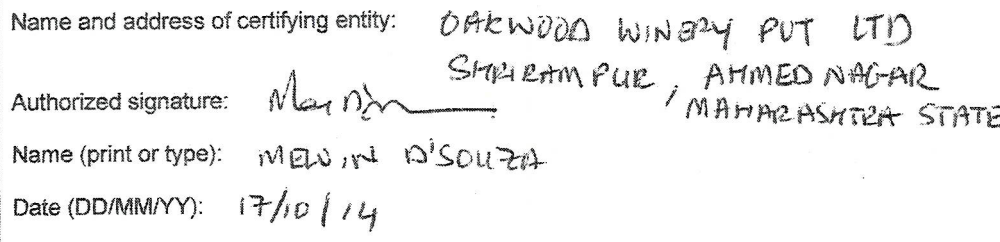 Name and address of certifying entity: OAKWOOD WINERY PVT LTD
SHRIRAMPUR, AHMEDNAGAR
MAHARASHTRA STATE
Authorized signature:
Name (print or type): MELVIN D'SOUZA
Date (DD/MM/YY): 17/10/14